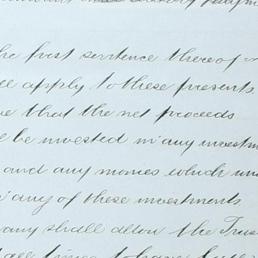 the first sentence thereof
apply to these presents
that the net proceeds
be invested in any investm
and any monies which
any of these investments
any shall allow the Trus